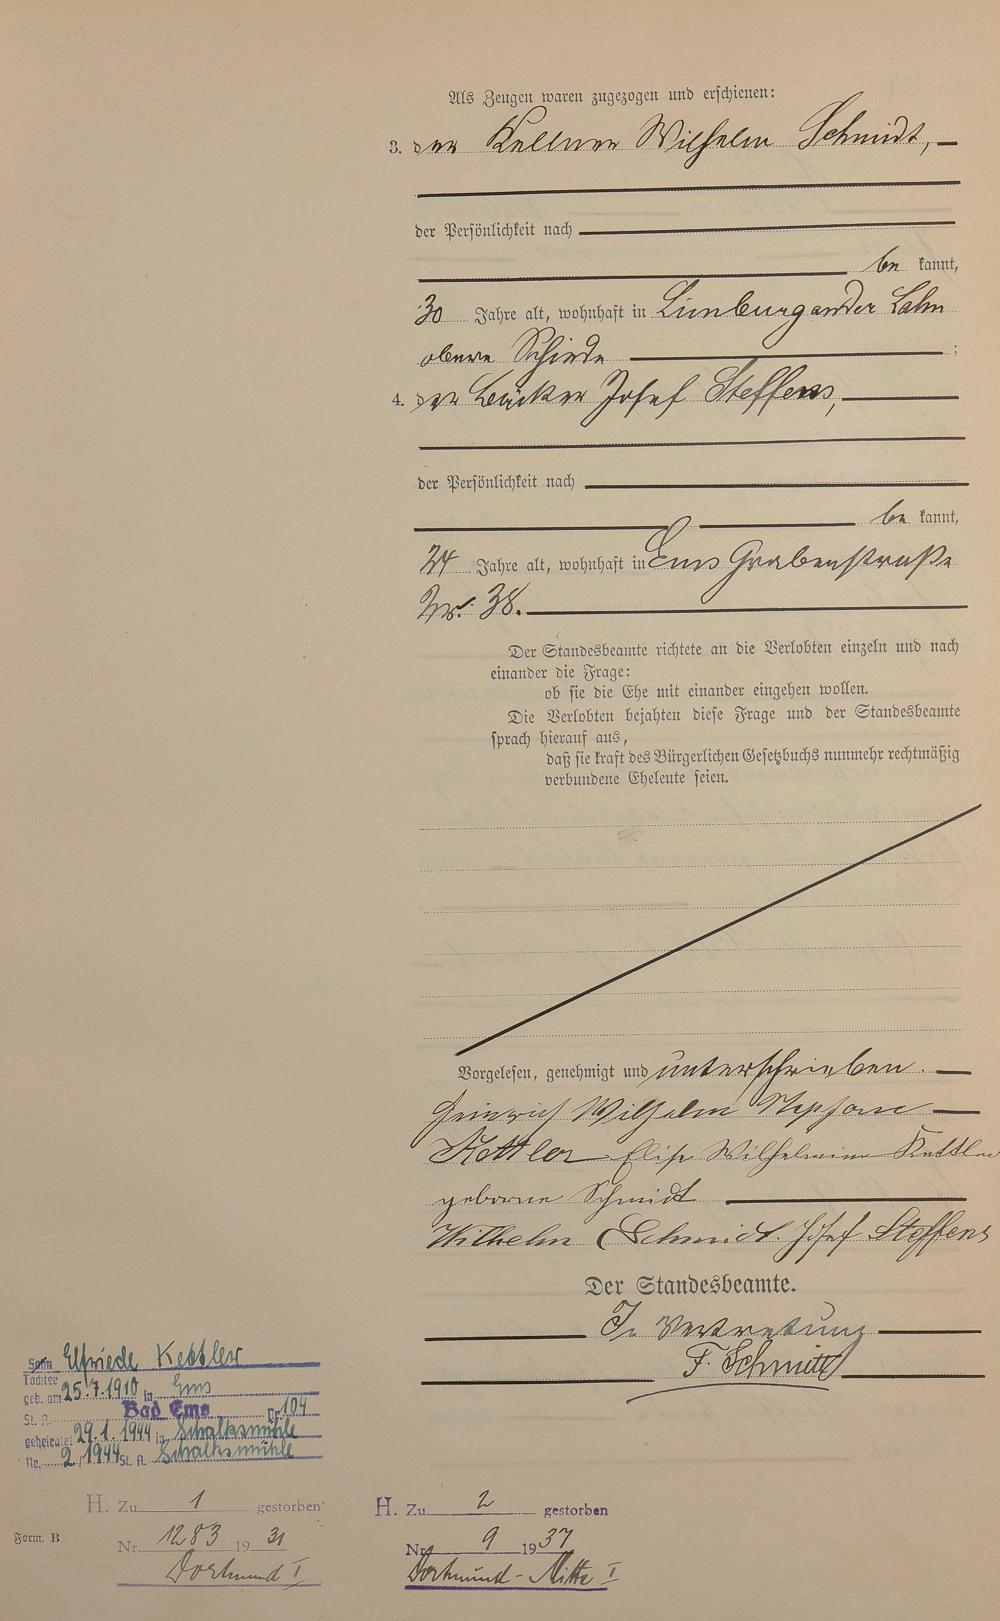 Als Zeugen waren zugezogen und erschienen:
3. der Kellner Wilhelm Schmidt,
der Persönlichkeit nach
be kannt,
30 Jahre alt, wohnhaft in Limburg an der Lahn
obere Schiede ;
4. der Bäcker Josef Steffens,
der Persönlichkeit nach
be kannt,
24 Jahre alt, wohnhaft in Ems Grabenstraße
Nr. 38.
Der Standesbeamte richtete an die Verlobten einzeln und nach
einander die Frage:
ob sie die Ehe mit einander eingehen wollen.
Die Verlobten bejahten diese Frage und der Standesbeamte
sprach hierauf aus,
daß sie kraft des Bürgerlichen Gesetzbuchs nunmehr rechtmäßig
verbundene Eheleute seien.
Vorgelesen, genehmigt und unterschrieben.
Heinrich Wilhelm Stephan
Kettler Elise Wilhelmine Kettler
geborne Schmidt
Wilhelm Schmidt. Josef Steffens
Der Standesbeamte.
In Vertretung
F. Schmitt
Sohn Elfriede Kettler
Tochter
geb. am 25.7.1910 in Ems
St. A. Bad Ems Nr. 104
geheiratet 29.1.1944 in Schalksmühle
Nr. 2/1944 St. A. Schalksmühle
H. Zu 1 gestorben
Nr. 1283 1931
Dortmund I
H. Zu 2 gestorben
Nr. 9 1937
Dortmund-Mitte I
Form. B